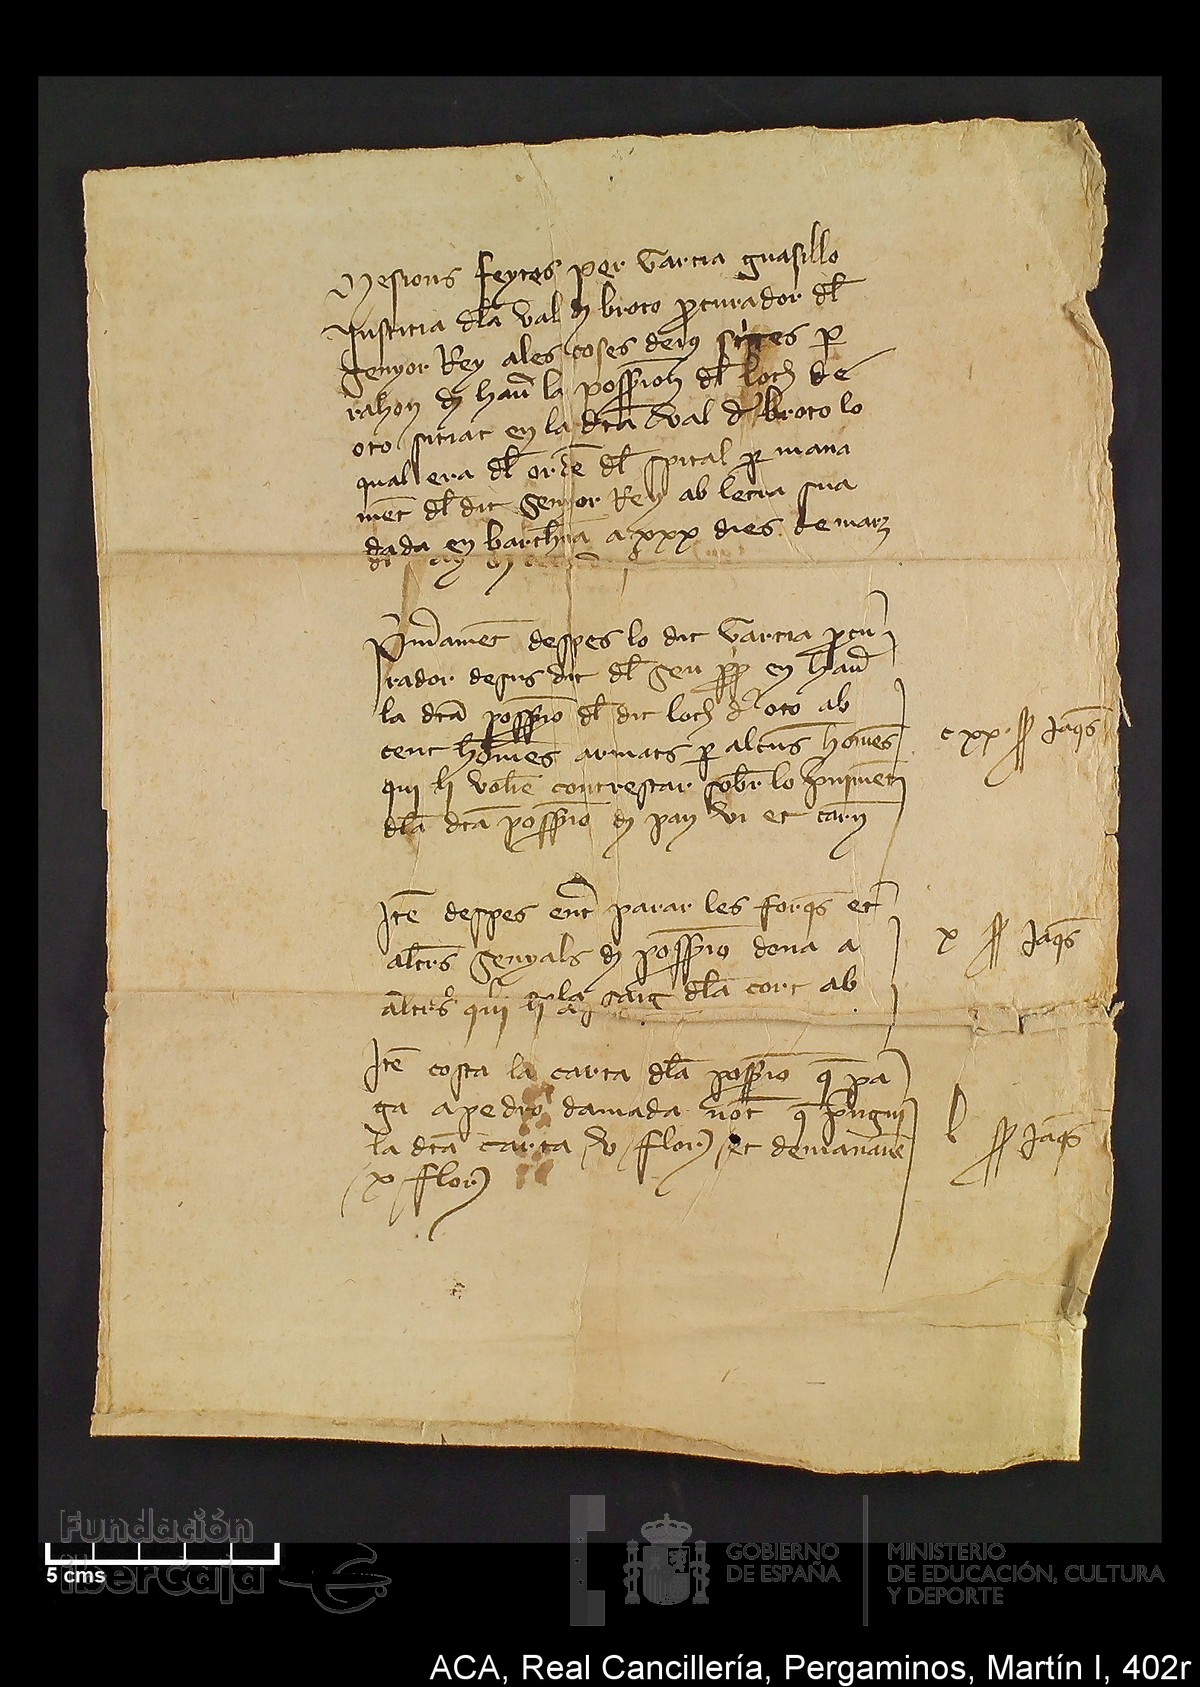 Mesions feytes per Garcia guasillo
Justicia dla val d broto pcurador dl
Senyor Rey ales coses deius scrites p
rahon d hau la possession dl loch de
oto sitiat en la dta val d broto lo
qual era dl orde dl spital p mana
met dl dit Senyor Rey ab letra sua
dada en barchna a xxx dies de marz
Primamet despes lo dit Garcia pcu
rador desus dit dl Seny en hau
la dta possessio dl dit loch d oto ab
cent homes armats p alcuns homes
qui li volie contrestar sobr lo
dla dta possessio d pan vi et carn
cxx ss Jaqs
Ite despes en parar les forqs et
altrs Senyals d possessio dona a
altrs qui li saig dla cort ab
x ss Jaqs
Ite costa la carta dla possessio q pa
ga a pedro damada not q pngui
la dta carta v flor et demanaue
x flor
l ss Jaqs
Fundación
iberCaja
5 cms
GOBIERNO
DE ESPAÑA
MINISTERIO
DE EDUCACIÓN, CULTURA
Y DEPORTE
ACA, Real Cancillería, Pergaminos, Martín I, 402r